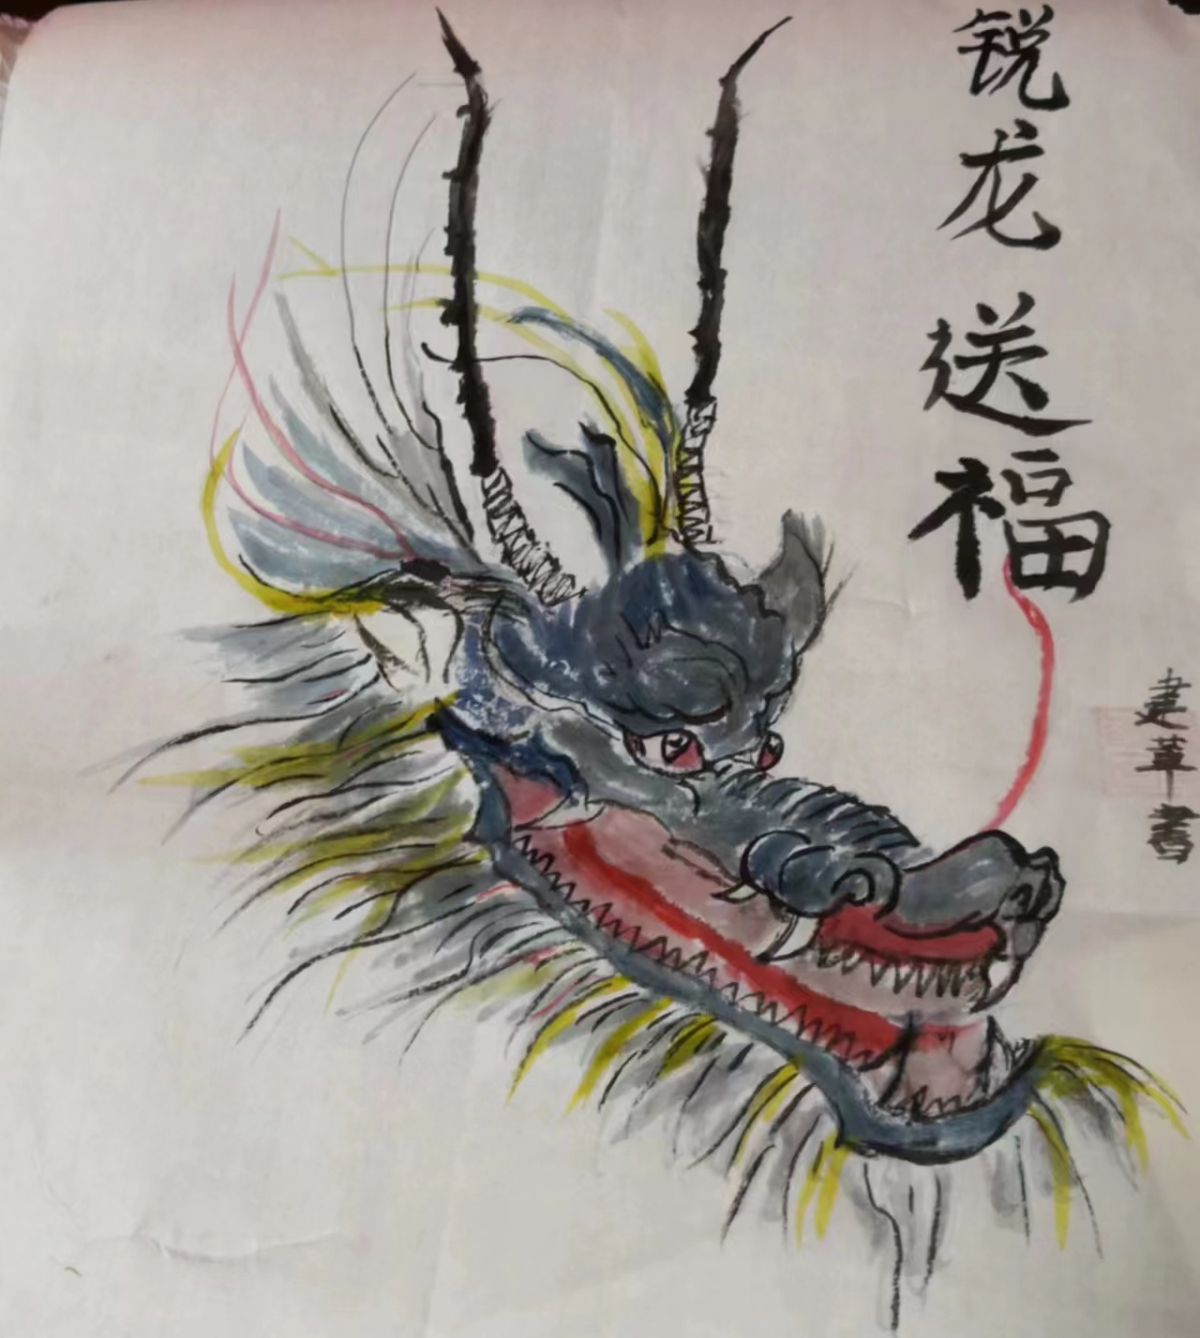 锐龙送福
建革書